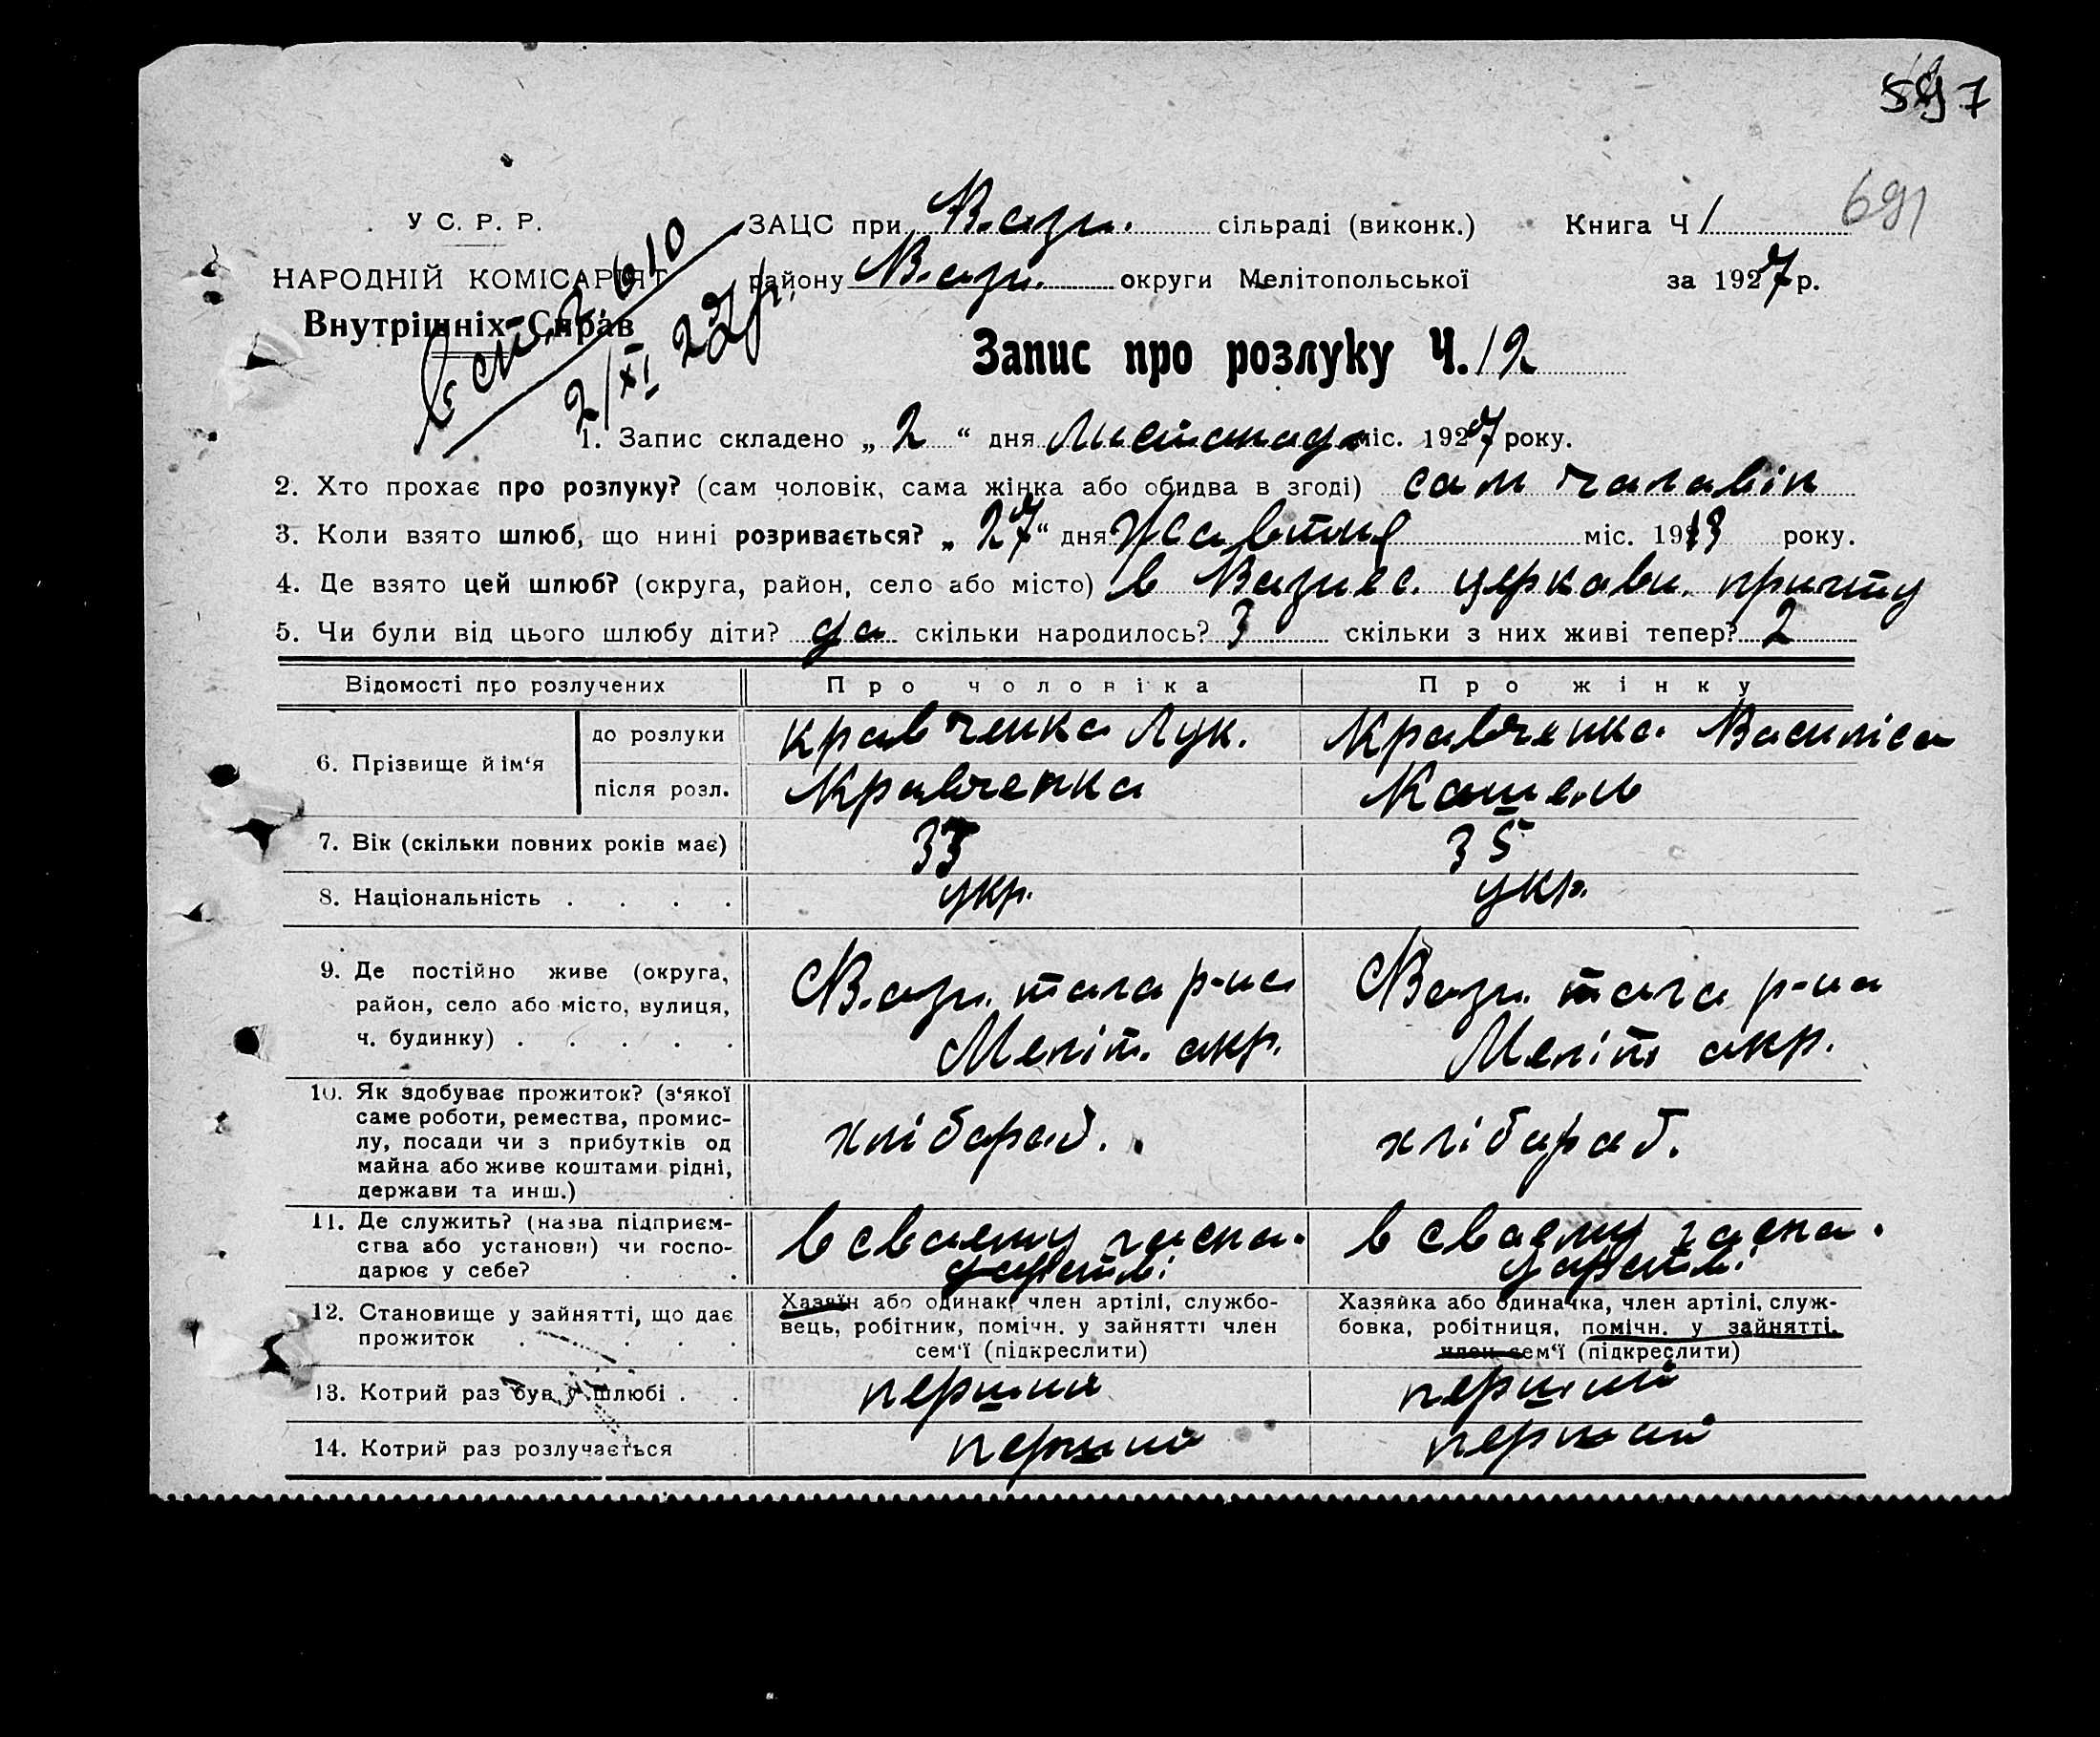 597
691
У С. Р. Р.
ЗАЦС при Возн. сільраді (виконк.) Книга Ч 1
НАРОДНІЙ КОМІСАРІЯТ
району Возн. округи Мелітопольської за 1927 р.
Внутрішніх Справ
610
2/XI 27 р.
Запис про розлуку Ч. 12
1. Запис складено „ 2 “ дня Листопада міс. 1927 року.
2. Хто прохає про розлуку? (сам чоловік, сама жінка або обидва в згоді) сам чоловік
3. Коли взято шлюб, що нині розривається? „ 27 “ дня Жовтня міс. 1913 року.
4. Де взято цей шлюб? (округа, район, село або місто) в Вознес. церковн. причту
5. Чи були від цього шлюбу діти? да скільки народилось? 3 скільки з них живі тепер? 2
Відомості про розлучених Про чоловіка Про жінку
6. Прізвище й ім‘я до розлуки Кравченко Лук. Кравченко Василіса
після розл. Кравченко Кошель
7. Вік (скільки повних років має) 33 35
8. Національність . . . . укр. укр.
9. Де постійно живе (округа, район, село або місто, вулиця, ч. будинку) . . . . .
Возн. того р-на Меліт. окр.
Возн. того р-на Меліт. окр.
10. Як здобуває прожиток? (з‘якої саме роботи, ремества, промислу, посади чи з прибутків од майна або живе коштами рідні, держави та инш.)
хлібороб. хлібороб.
11. Де служить? (назва підприємства або установи) чи господарює у себе? . .
в своєму госпо- дарстві
в своєму госпо- дарстві
12. Становище у зайнятті, що дає прожиток . . . .
Хазяїн або одинак, член артілі, службовець, робітник, помічн. у зайнятті член сем‘ї (підкреслити)
Хазяйка або одиначка, член артілі, службовка, робітниця, помічн. у зайнятті. член сем‘ї (підкреслити)
13. Котрий раз був у шлюбі . . перший перший
14. Котрий раз розлучається . перший перший